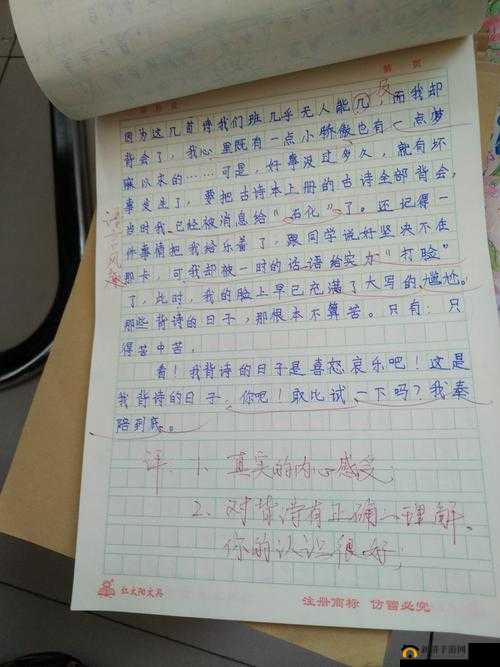 因为这几首诗我们班几乎无人能几及，而我却
背会了，我心里既有一点小骄傲也有一点梦
寐以末的……可是，好事没过多久，就有坏
事发生了，要把古诗本上册的古诗全部背会，
当时我已经被消息给“石化”了。还记得一
件事情把我给乐着了，跟同学说好坚决不在
那卡，可我却被一时的话语给实力“打脸”
了，此时，我的脸上早已充满了大写的尴尬。
那些背诗的日子，那根本不算苦。只有：只
得苦中苦，
看！我背诗的日子是喜怒哀乐吧！这是
我背诗的日子，你吧！敢比试一下吗？我奉
陪到底。
评：1、真实的内心感受；
2、对背诗有正确的理解，
你的认识很好；
红太阳文具
注册商标 仿冒必究
新游手游网